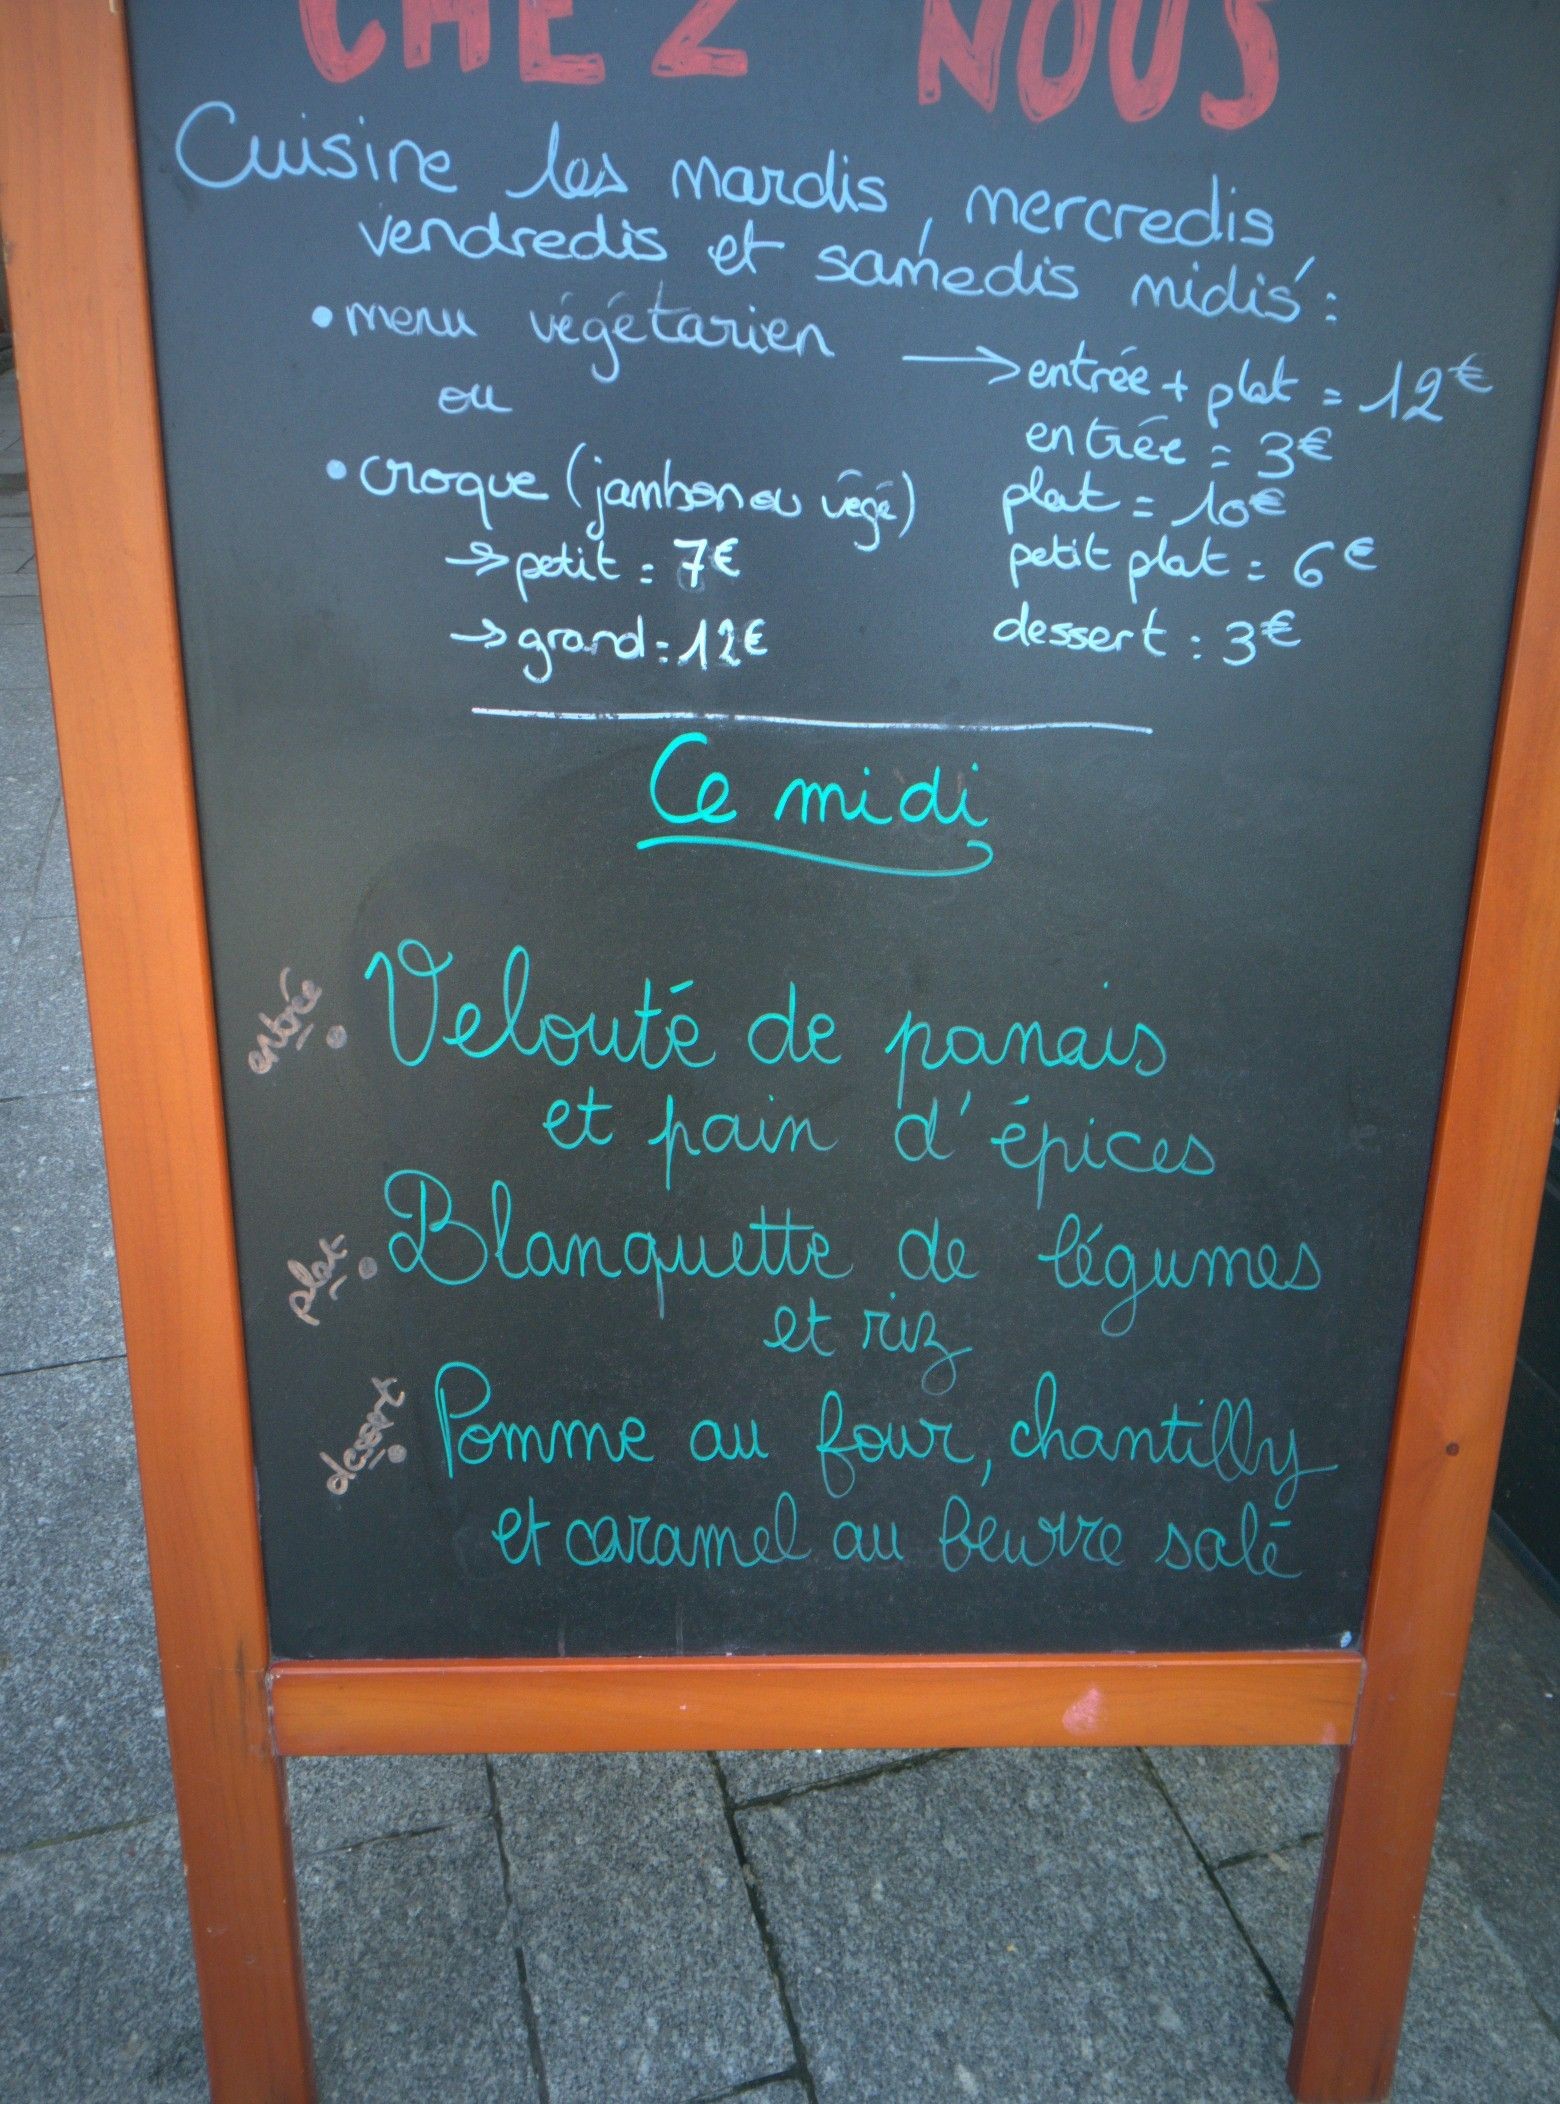 CHEZ NOUS
Cuisine les mardis, mercredis,
vendredis et samedis midis :
• menu végétarien → entrée + plat = 12€
ou
entrée = 3€
• croque (jambon ou végé)
plat = 10€
→ petit = 7€
petit plat = 6€
→ grand = 12€
dessert : 3€
Ce midi
entrée • Velouté de panais
et pain d'épices
plat • Blanquette de légumes
et riz
dessert • Pomme au four, chantilly
et caramel au beurre salé